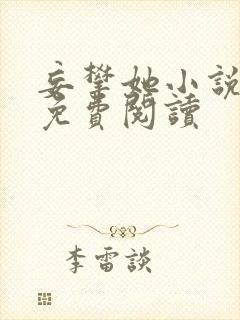 妄攀她小說
免費閱讀
李雷談